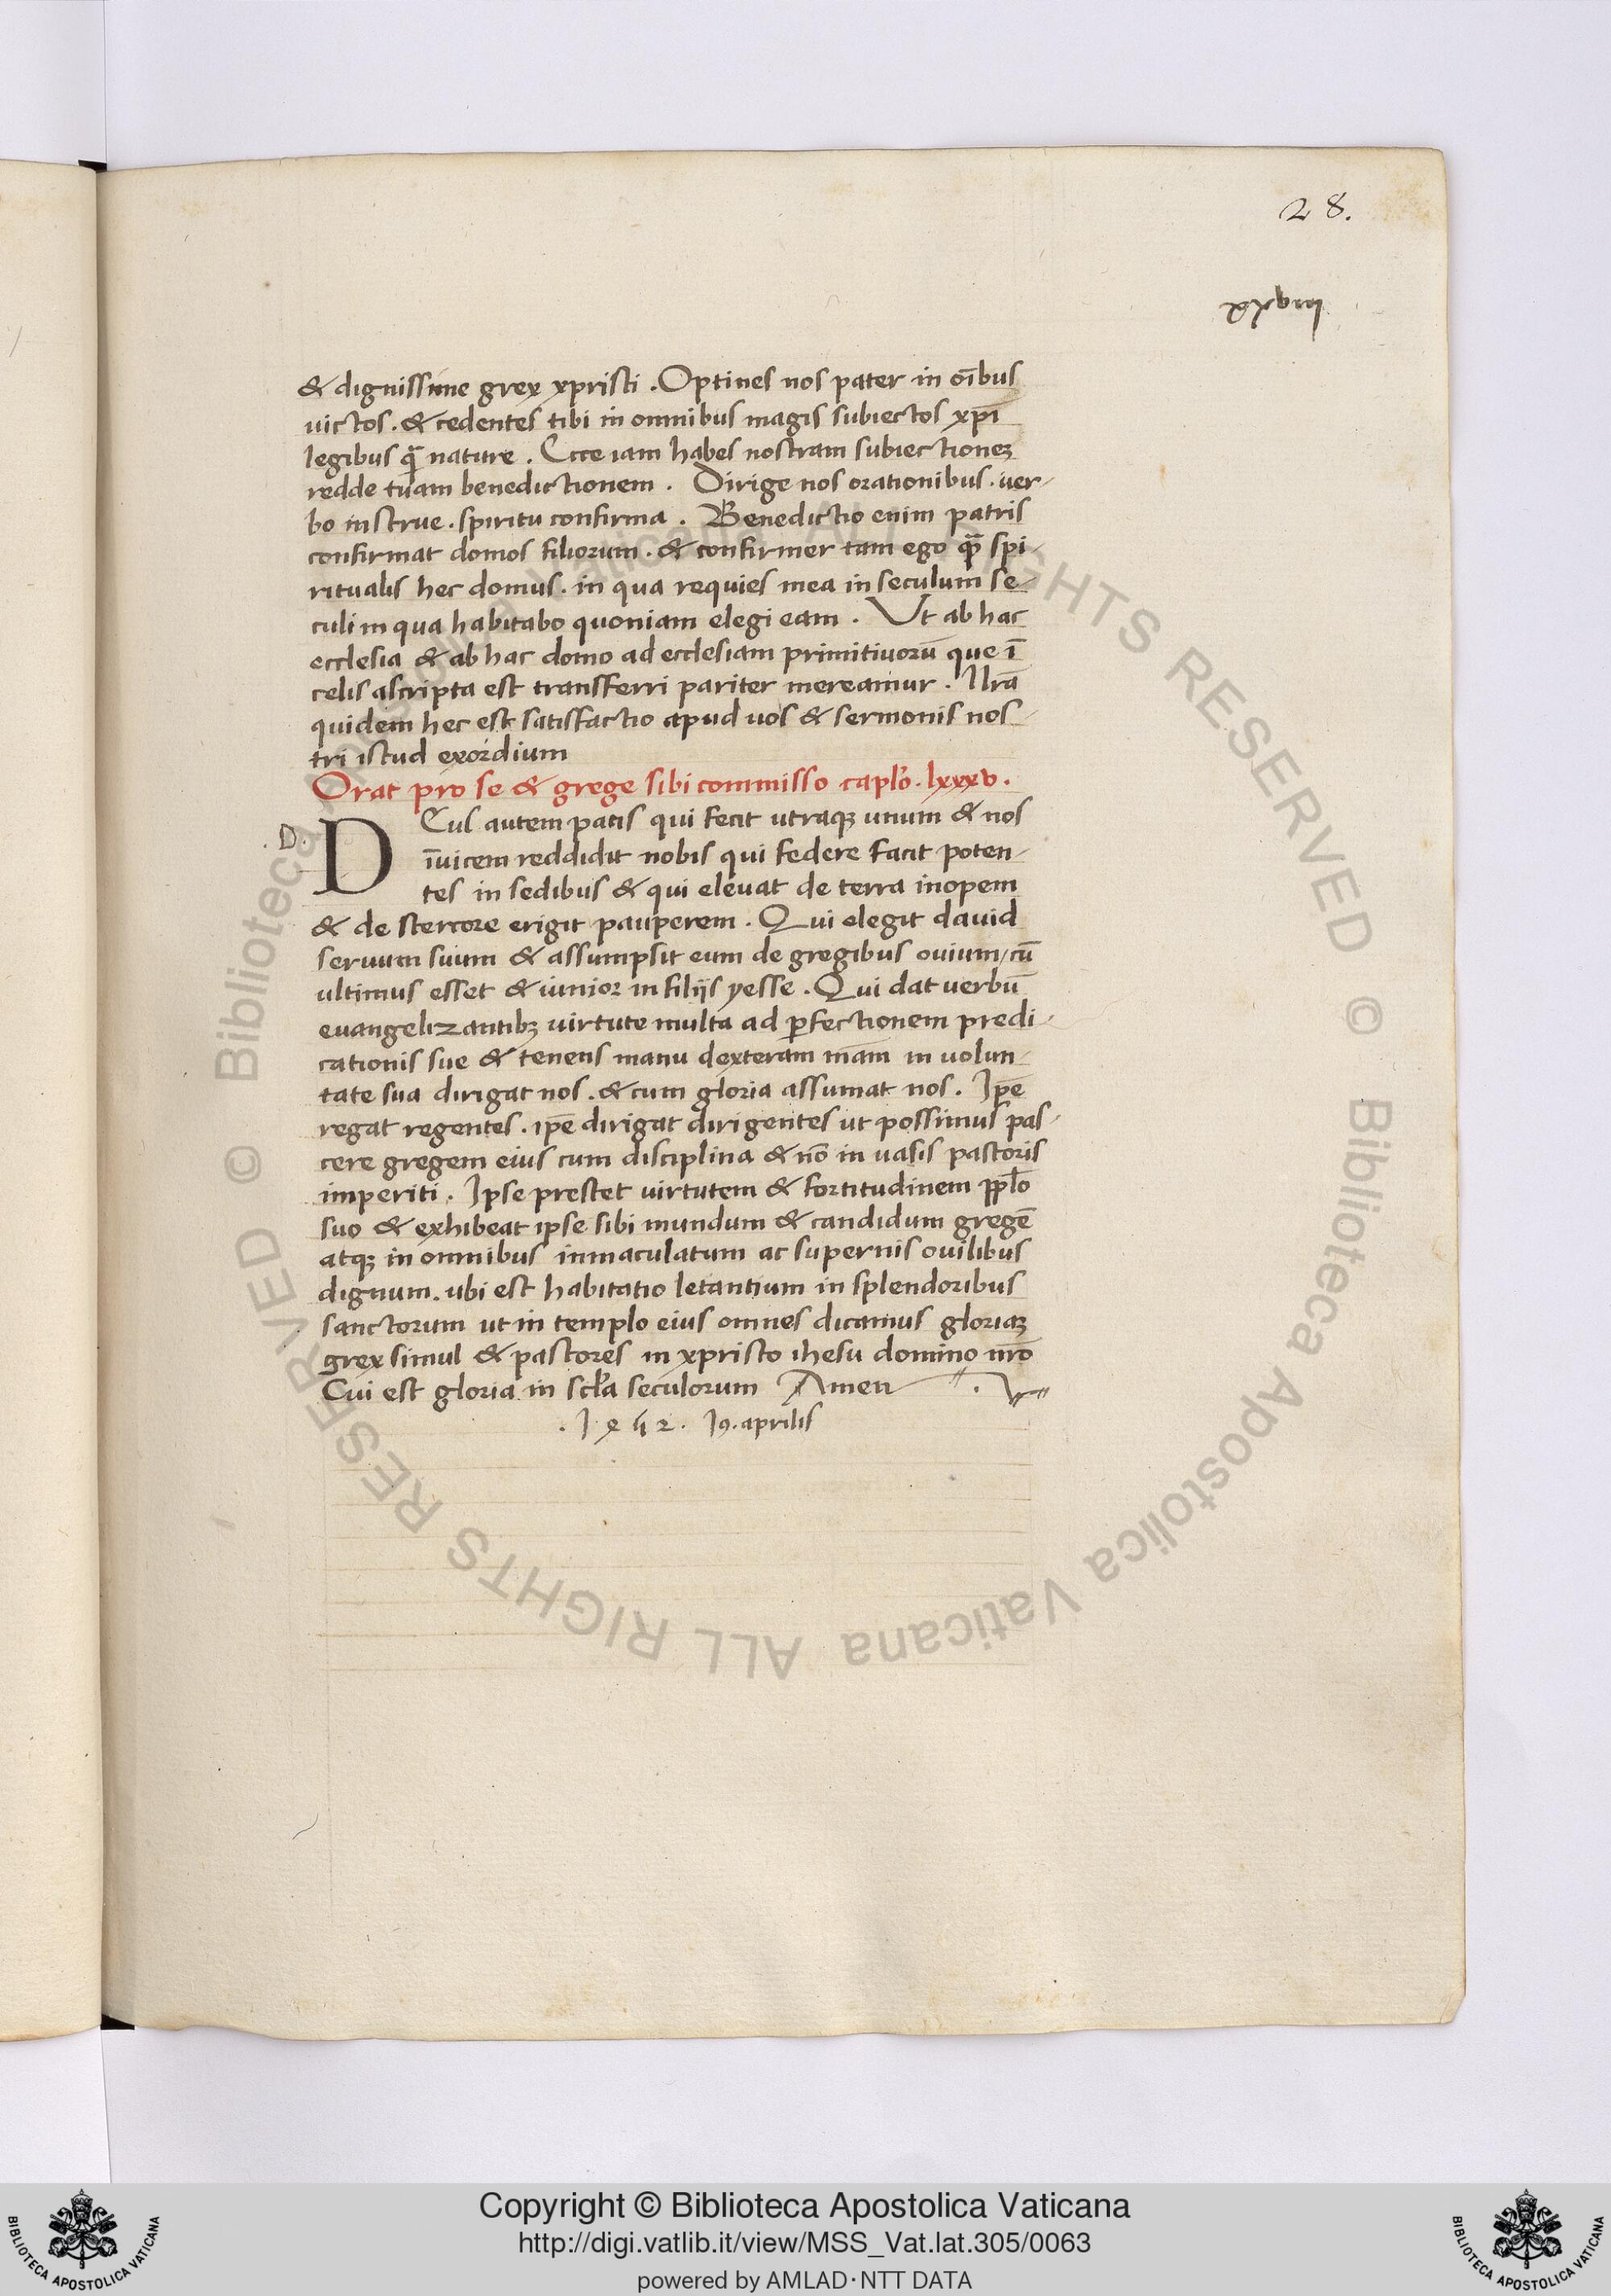 28.
xxviij
& dignissime grex xpristi . Optines nos pater in oı̄bus
uictos . & cedentes tibi in omnibus magis subiectos xpı̄
legibus q̄ȝ nature . Ecce iam habes nostram subiectioneȝ
redde tuam benedictionem . Dirige nos orationibus . uer-
bo instrue . spiritu confirma . Benedictio enim patris
confirmat domos filiorum . & confirmer tam ego q̄ȝ spi-
ritualis hec domus . in qua requies mea in seculum se-
culi in qua habitabo quoniam elegi eam . Vt ab hac
ecclesia & ab hac domo ad ecclesiam primitiuorū que ı̄
celis ascripta est transferri pariter mereamur . Nrā
quidem hec est satisfactio apud uos & sermonis nos-
tri istud exordium
Orat pro se & grege sibi commisso caplo . lxxxv .
.D. DEus autem pacis qui fecit utraqȝ unum & nos
ı̄uicem reddidit nobis qui federe facit poten-
tes in sedibus & qui eleuat de terra inopem
& de stercore erigit pauperem . Qui elegit dauid
seruum suum & assumpsit eum de gregibus ouium / cū
ultimus esset & iunior in filijs yesse . Qui dat uerbū
euangelizantibȝ uirtute multa ad ꝑfectionem predi-
cationis sue & tenens manu dexteram nrām in uolun-
tate sua dirigat nos . & cum gloria assumat nos . Ipē
regat regentes . ipē dirigat dirigentes ut possimus pas-
cere gregem eius cum disciplina & nō in uasis pastoris
imperiti . Ipse prestet uirtutem & fortitudinem pplo
suo & exhibeat ipse sibi mundum & candidum gregē
atqȝ in omnibus inmaculatum ac supernis ouilibus
dignum . ubi est habitatio letantium in splendoribus
sanctorum ut in templo eius omnes dicamus gloriaȝ
grex simul & pastores in xpristo ihesu domino nrō
Cui est gloria in scła seculorum Amen .
19. aprilis
Copyright © Biblioteca Apostolica Vaticana
http://digi.vatlib.it/view/MSS_Vat.lat.305/0063
powered by AMLAD·NTT DATA
BIBLIOTECA APOSTOLICA VATICANA
BIBLIOTECA APOSTOLICA VATICANA
© Biblioteca Apostolica Vaticana ALL RIGHTS RESERVED © Biblioteca Apostolica Vaticana ALL RIGHTS RESERVED